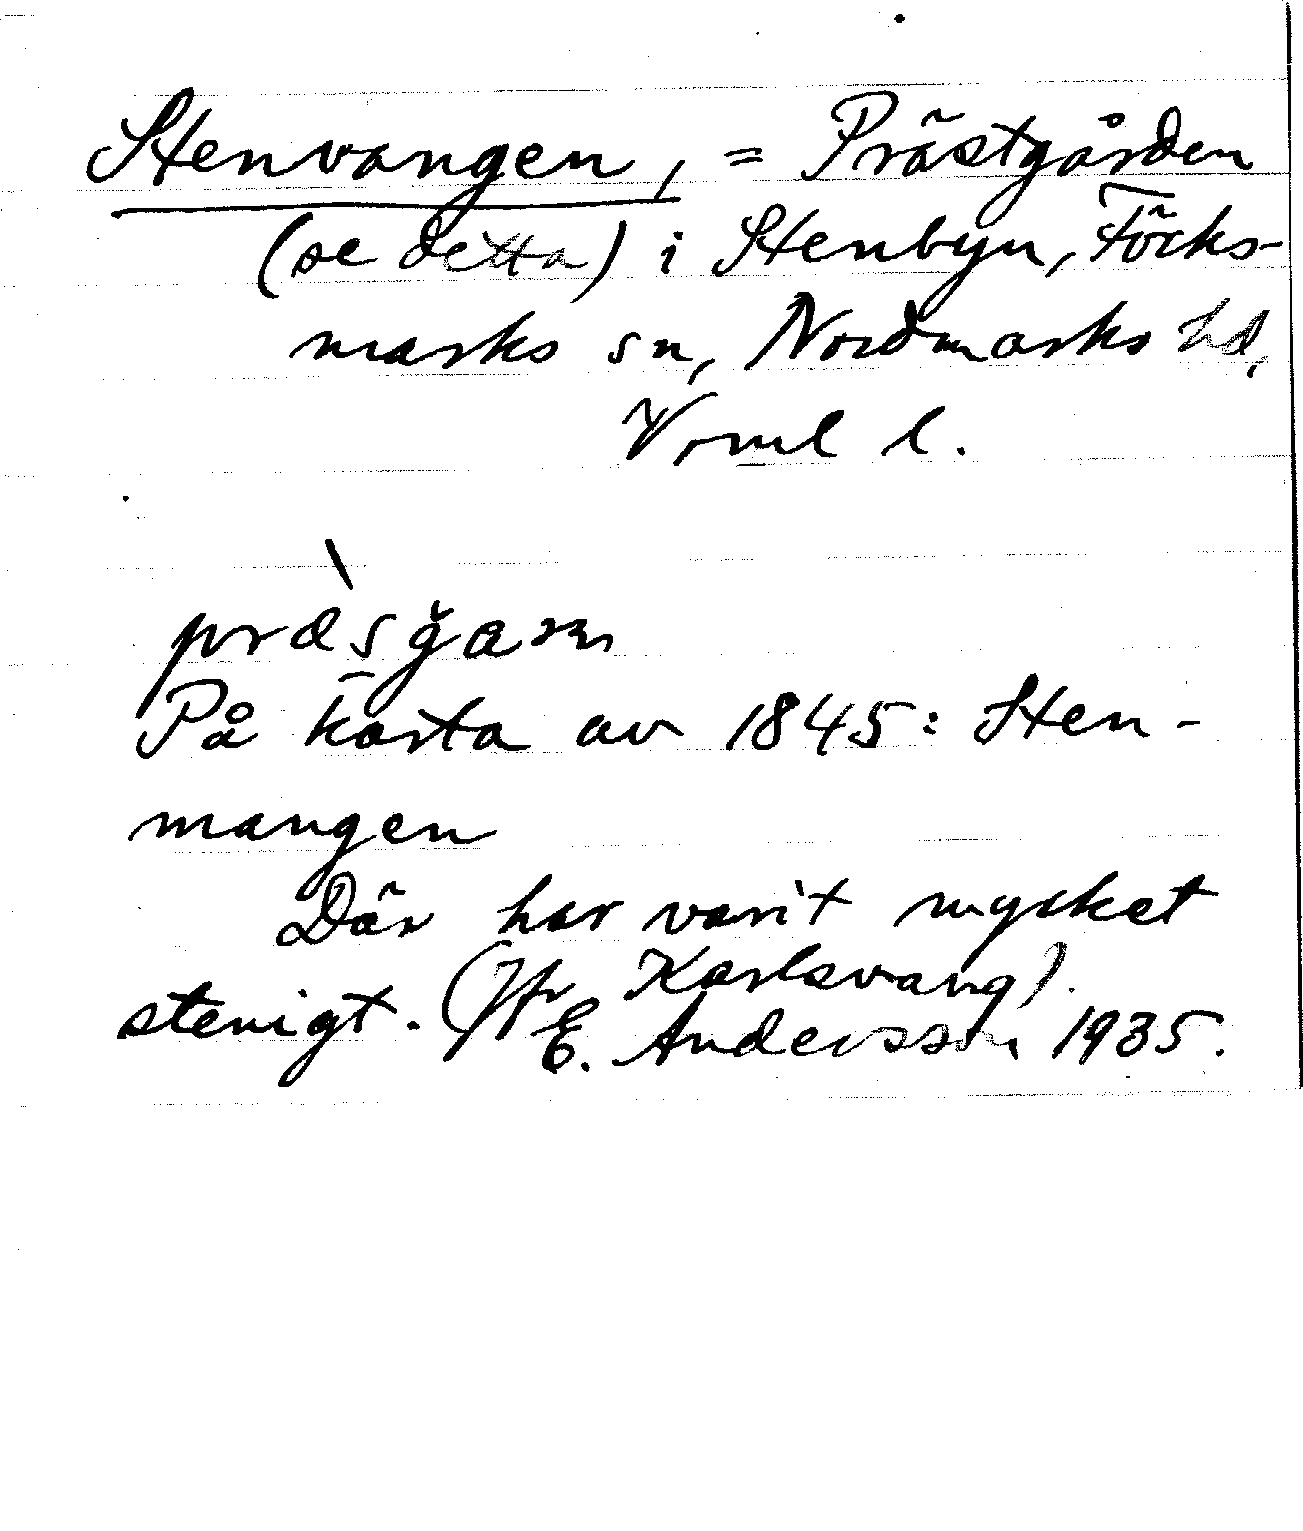 Stenvangen, = Prästgården
(se detta) i Stenbyn, Töcks-
marks sn, Nordmarks hd,
Värml l.
På karta av 1845: Sten-
mangen
Där har varit mycket
stenigt. (Jfr Karlsvang).
E. Andersson 1935.